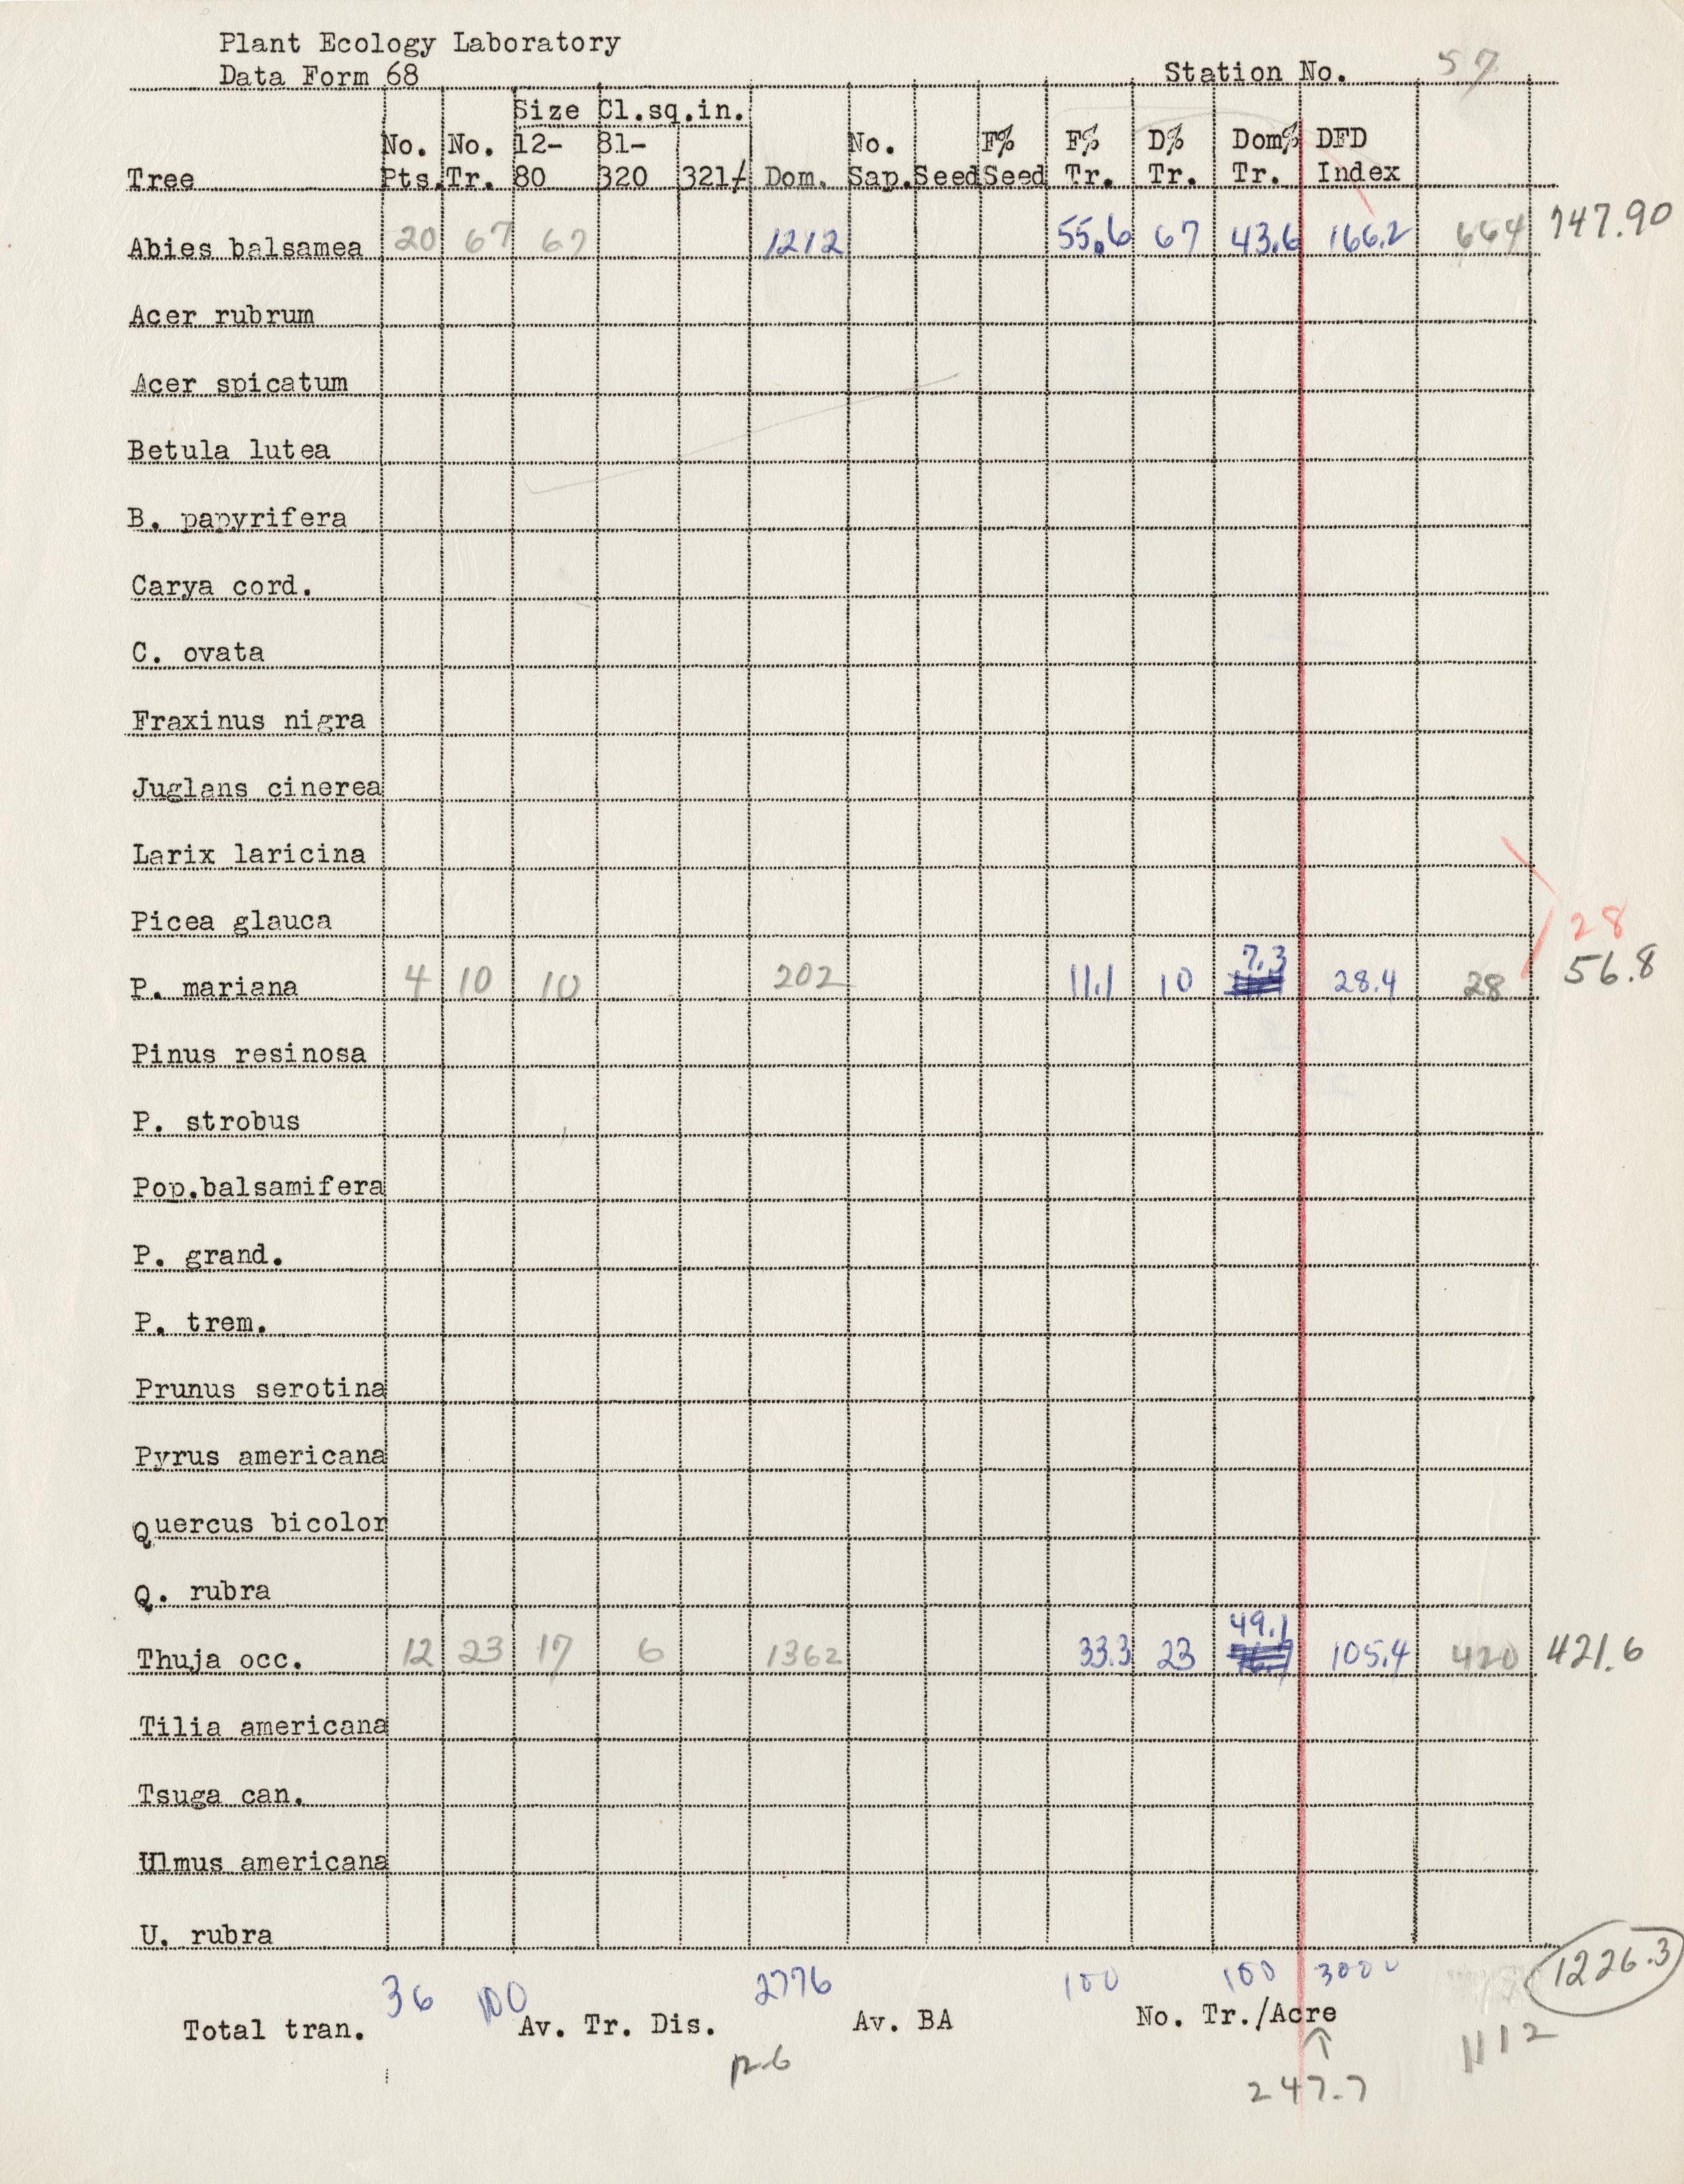 Plant Ecology Laboratory
Data Form 68 Station No. 57
Size Cl.sq.in.
No. No. 12- 81- No. F% F% D% Dom% DFD
Tree Pts. Tr. 80 320 321/ Dom. Sap. Seed Seed Tr. Tr. Tr. Index
Abies balsamea 20 67 67 1212 55.6 67 43.6 166.2 664 747.90
Acer rubrum
Acer spicatum
Betula lutea
B. papyrifera
Carya cord.
C. ovata
Fraxinus nigra
Juglans cinerea
Larix laricina
Picea glauca
28
7.3
P. mariana 4 10 10 202 11.1 10 28.4 28 56.8
Pinus resinosa
P. strobus
Pop.balsamifera
P. grand.
P. trem.
Prunus serotina
Pyrus americana
Quercus bicolor
Q. rubra
49.1
Thuja occ. 12 23 17 6 1362 33.3 23 105.4 420 421.6
Tilia americana
Tsuga can.
Ulmus americana
U. rubra
1226.3
36 100 2776 100 100 300
Total tran. Av. Tr. Dis. Av. BA No. Tr./Acre
1112
12.6
247.7